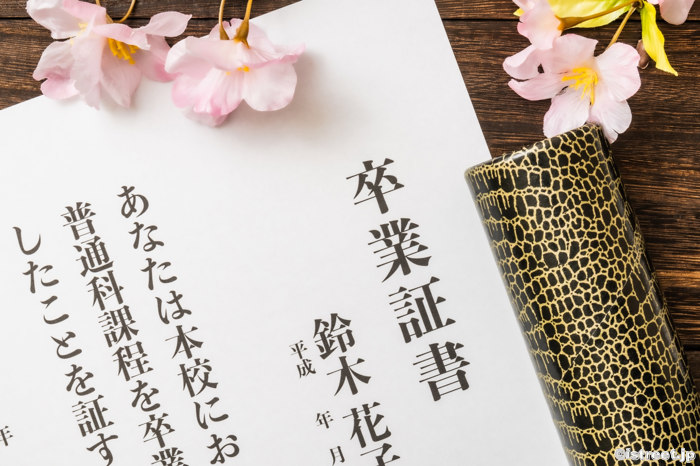 卒業証書
鈴木花子
平成 年 月
あなたは本校にお
普通科課程を卒業
したことを証す
年
©istreet.jp